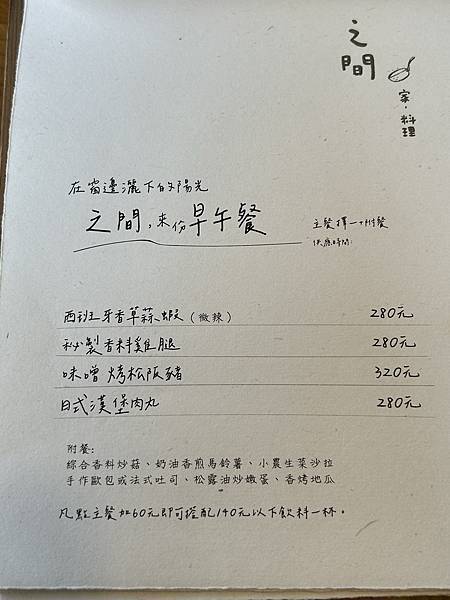 之間
家·料理
在窗邊灑下的陽光
之間,來份早午餐
主餐擇一+附餐
供應時間:
西班牙香草蒜蝦(微辣) 280元
祕製香料雞腿 280元
味噌烤松阪豬 320元
日式漢堡肉丸 280元
附餐:
綜合香料炒菇、奶油香煎馬鈴薯、小農生菜沙拉
手作歐包或法式吐司、松露油炒嫩蛋、香烤地瓜
凡點主餐加60元即可搭配140元以下飲料一杯。